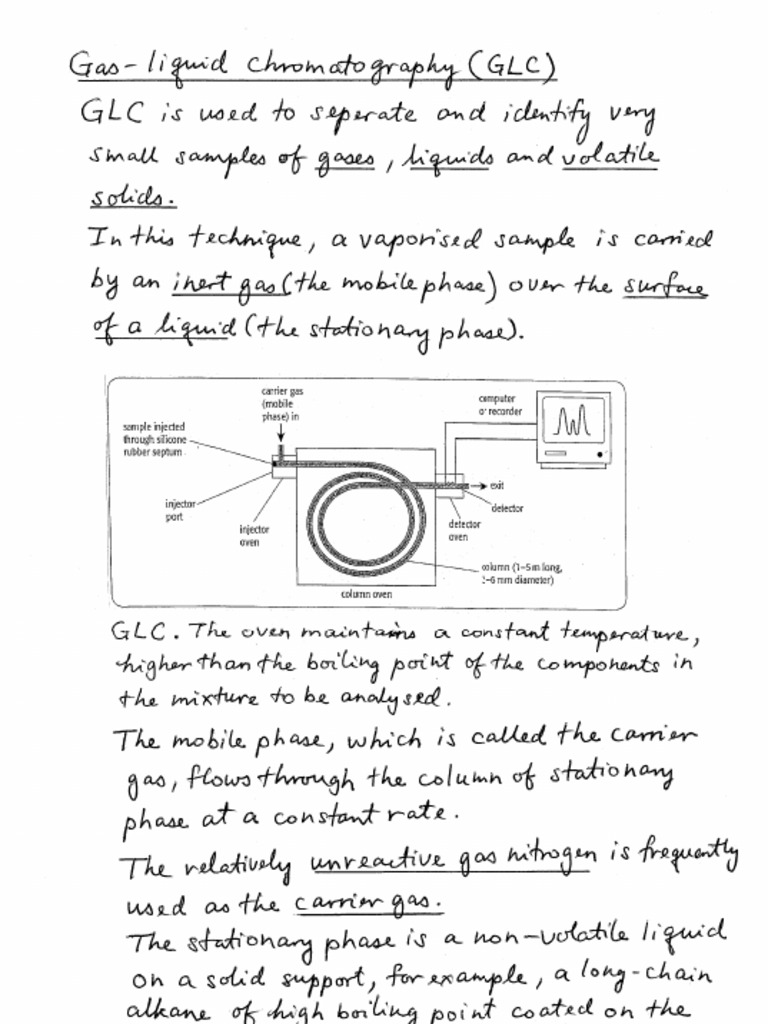 Gas-liquid chromatography (GLC)
GLC is used to seperate and identify very
small samples of gases, liquids and volatile
solids.
In this technique, a vaporised sample is carried
by an inert gas (the mobile phase) over the surface
of a liquid (the stationary phase).
carrier gas
(mobile
phase) in
computer
or recorder
sample injected
through silicone
rubber septum
injector
port
injector
oven
exit
detector
detector
oven
column (1–5 m long,
2–6 mm diameter)
column oven
GLC. The oven maintains a constant temperature,
higher than the boiling point of the components in
the mixture to be analysed.
The mobile phase, which is called the carrier
gas, flows through the column of stationary
phase at a constant rate.
The relatively unreactive gas nitrogen is frequently
used as the carrier gas.
The stationary phase is a non-volatile liquid
on a solid support, for example, a long-chain
alkane of high boiling point coated on the